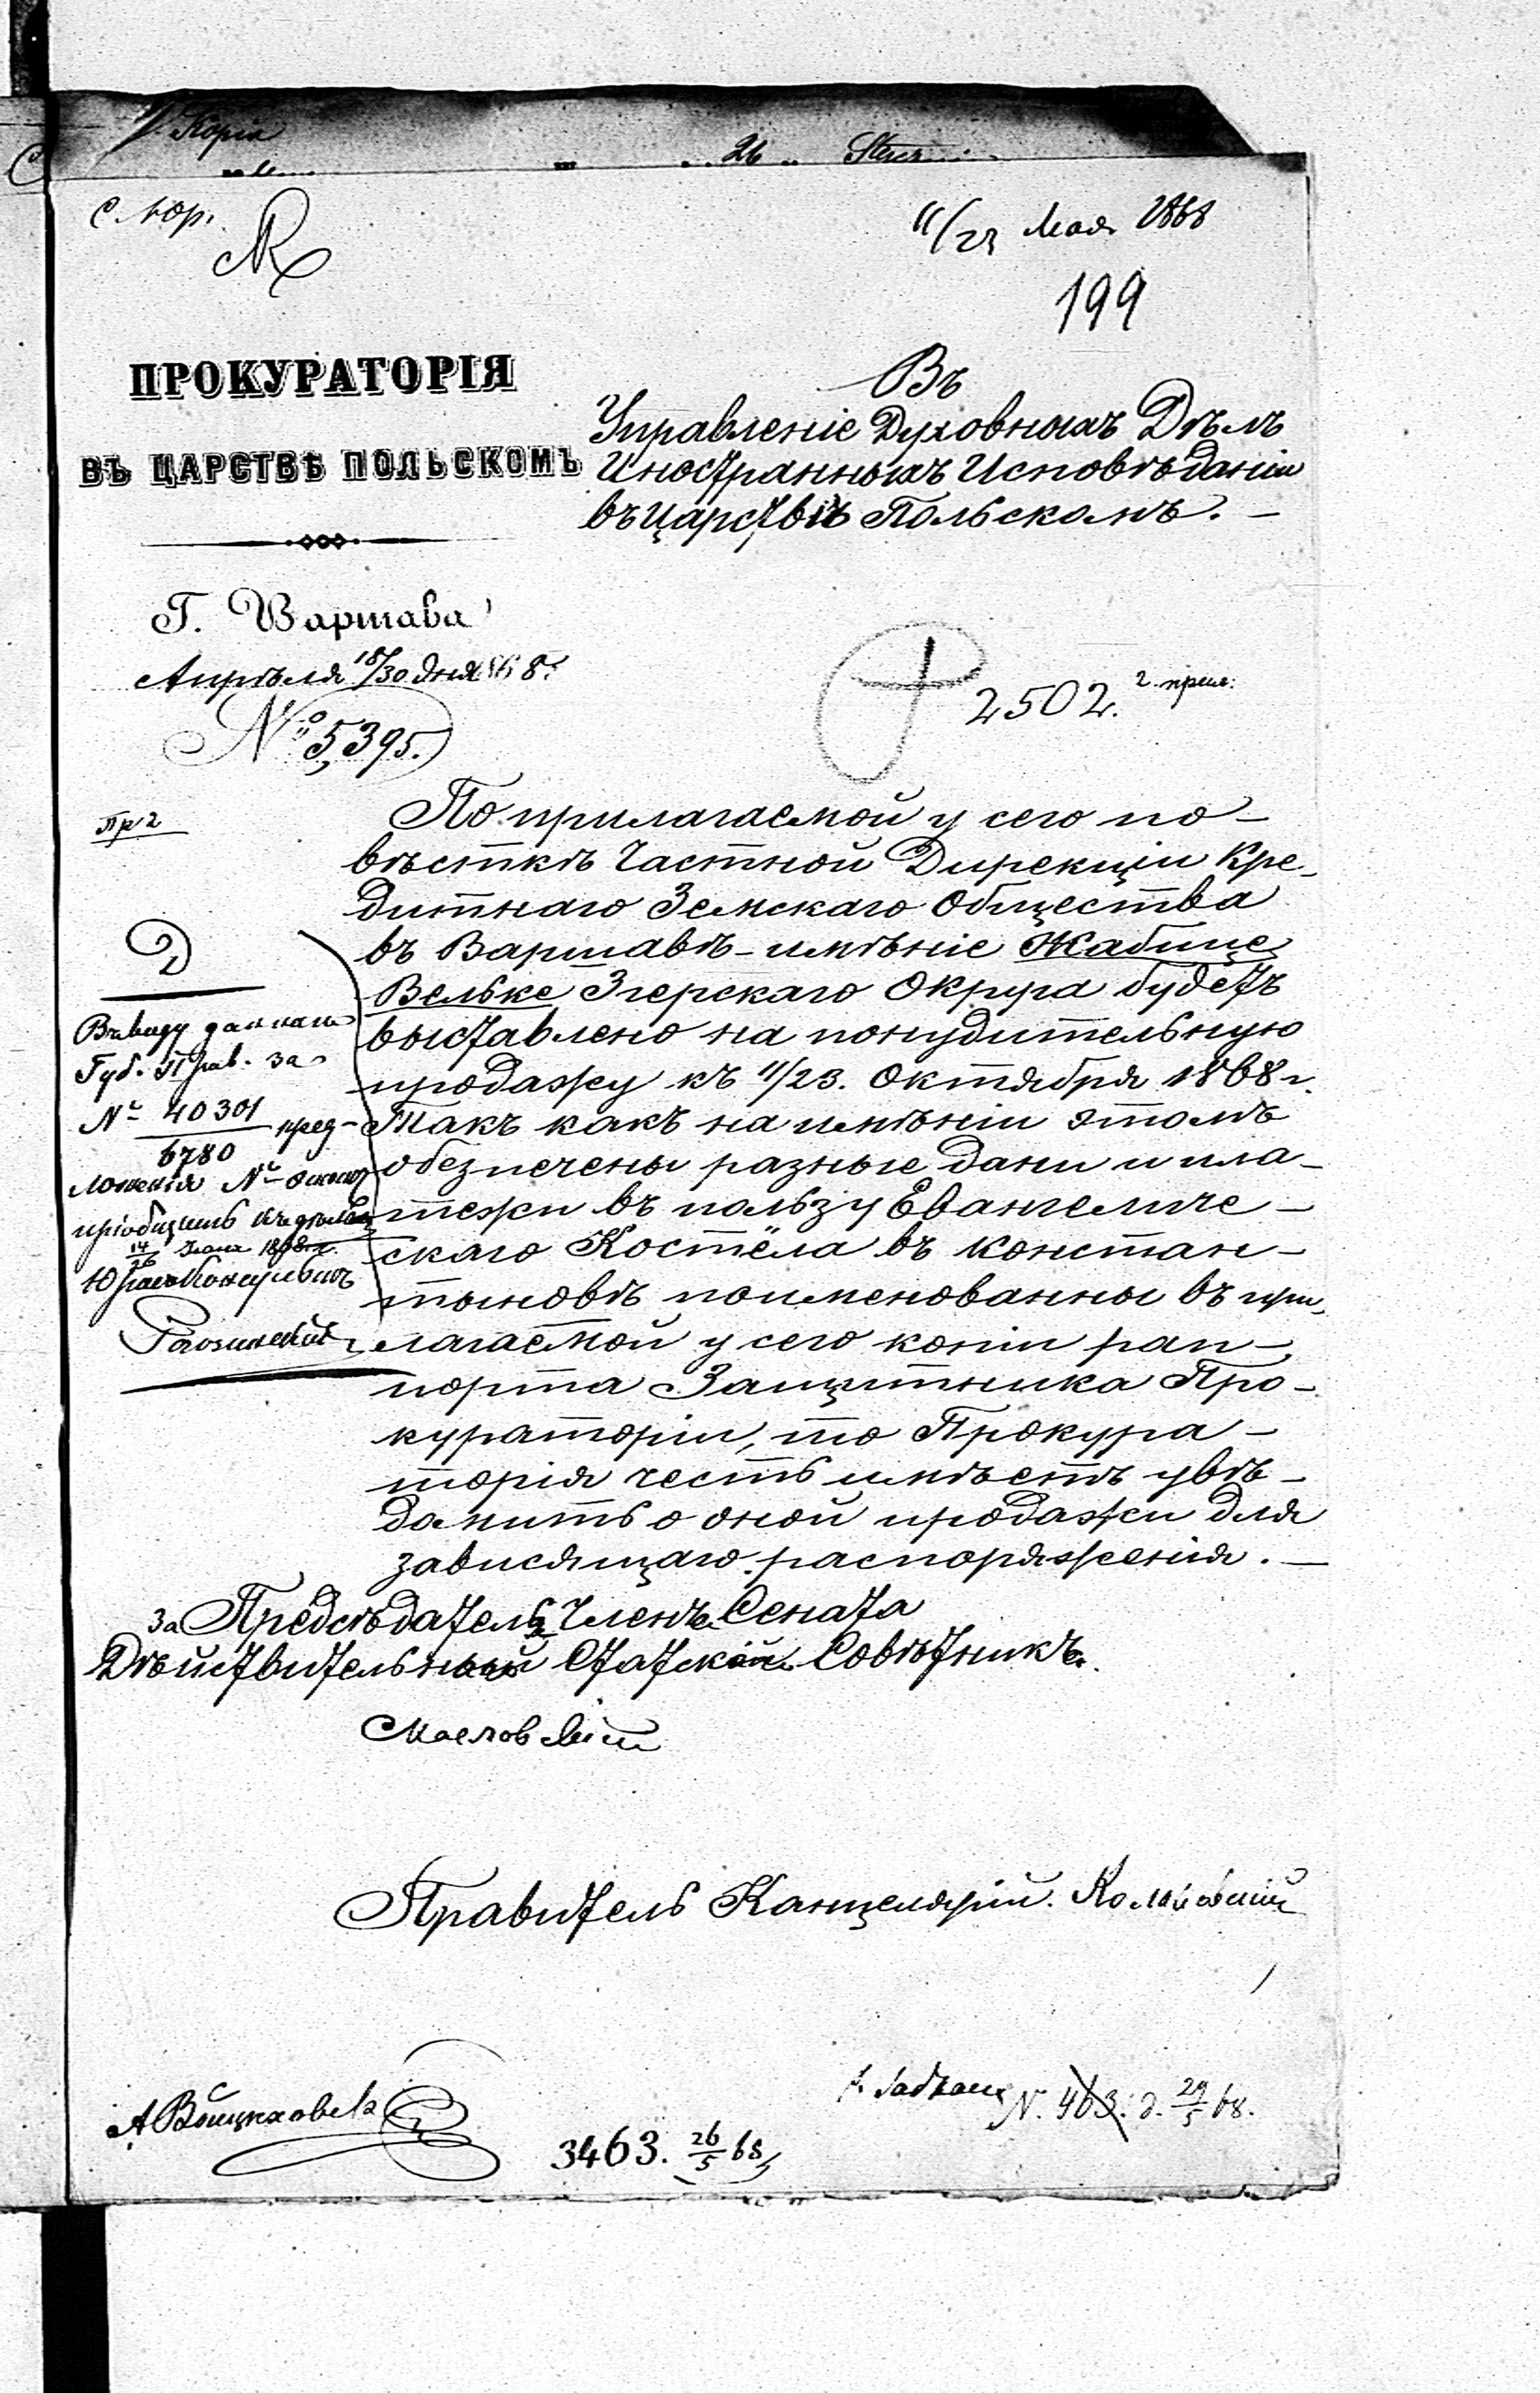 Копія
26
С. Юр.
11/23 Мая 1868
199
ПРОКУРАТОРІЯ
ВЪ ЦАРСТВѢ ПОЛЬСКОМЪ
Въ
Управленіе Духовныхъ Дѣлъ
Иностранныхъ Исповѣданій
въ Царствѣ Польскомъ. —
Г. Варшава
Апрѣля 18/30 дня 1868 г.
№ 5,395.
2502. 2 прил:
Пр 2
По прилагаемой у сего по-
вѣсткѣ Частной Дирекціи Кре-
дитнаго Земскаго Общества
въ Варшавѣ - имѣніе Жабице
Вельке Згерскаго Округа будетъ
выставлено на понудительную
продажу къ 11/23. Октября 1868 г.
Такъ какъ на имѣніи этомъ
обезпечены разные дани и пла-
тежи въ пользу Евангеличе-
скаго Костёла въ Констан-
тыновѣ поименованны въ при-
лагаемой у сего копіи рап-
порта Защитника Про-
кураторіи, то Прокура-
торія честь имѣетъ увѣ-
домить о оной продажи для
зависящаго распоряженія. —
Д
Въ виду даннаго
Губ. Прав. за
№ 40301/6780 пред-
ложенія №
пріобщить къ дѣлу
14/26 1868 г.
Юрисконсультъ
За Предсѣдателя Членъ Сената
Дѣйствительный Статскій Совѣтникъ
Правитель Канцеляріи.
3463. 26/5 68
N. 463. d. 29/5 68.